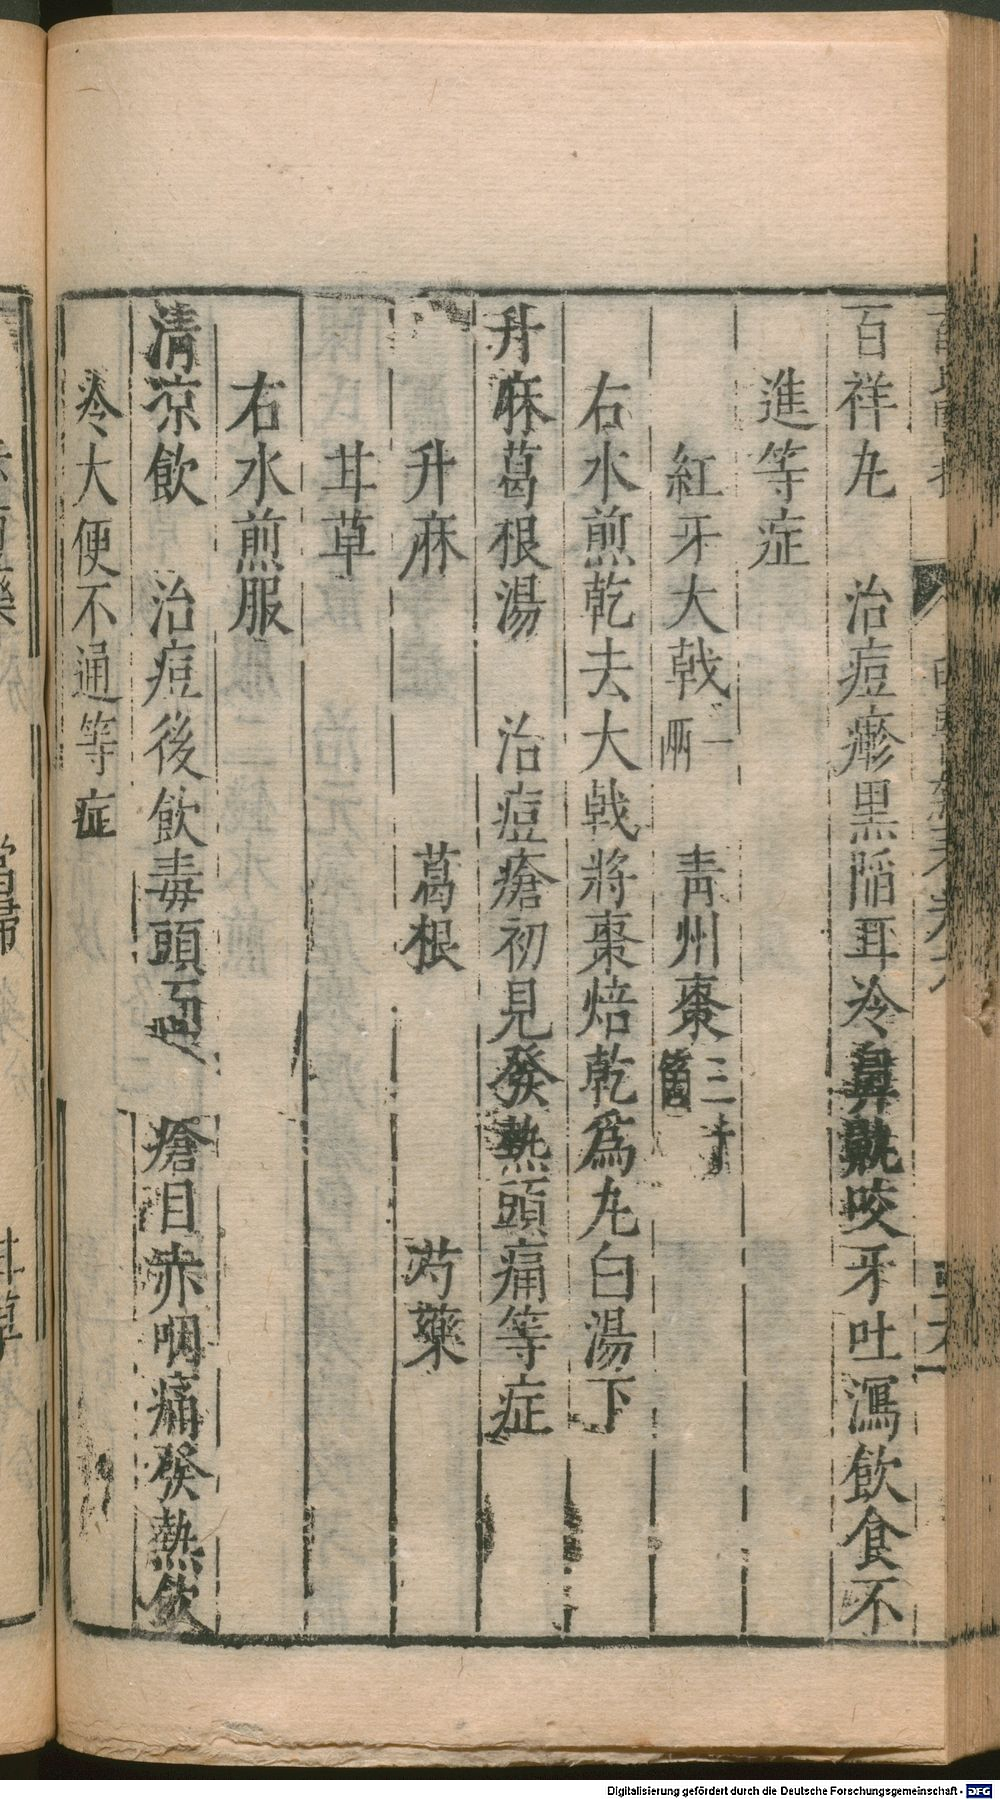 百祥丸　治痘瘮黒陷耳冷鼻𩕄咬牙吐瀉飲食不
進等症
紅牙大戟一兩　青州棗三十箇
右水煎乾去大戟將棗焙乾爲丸白湯下
升麻葛根湯　治痘瘡初見發熱頭痛等症
升麻　葛根　芍藥
甘草
右水煎服
清涼飲　治痘後飲毒頭面　瘡目赤咽痛發熱飲
冷大便不通等症
Digitalisierung gefördert durch die Deutsche Forschungsgemeinschaft - DFG